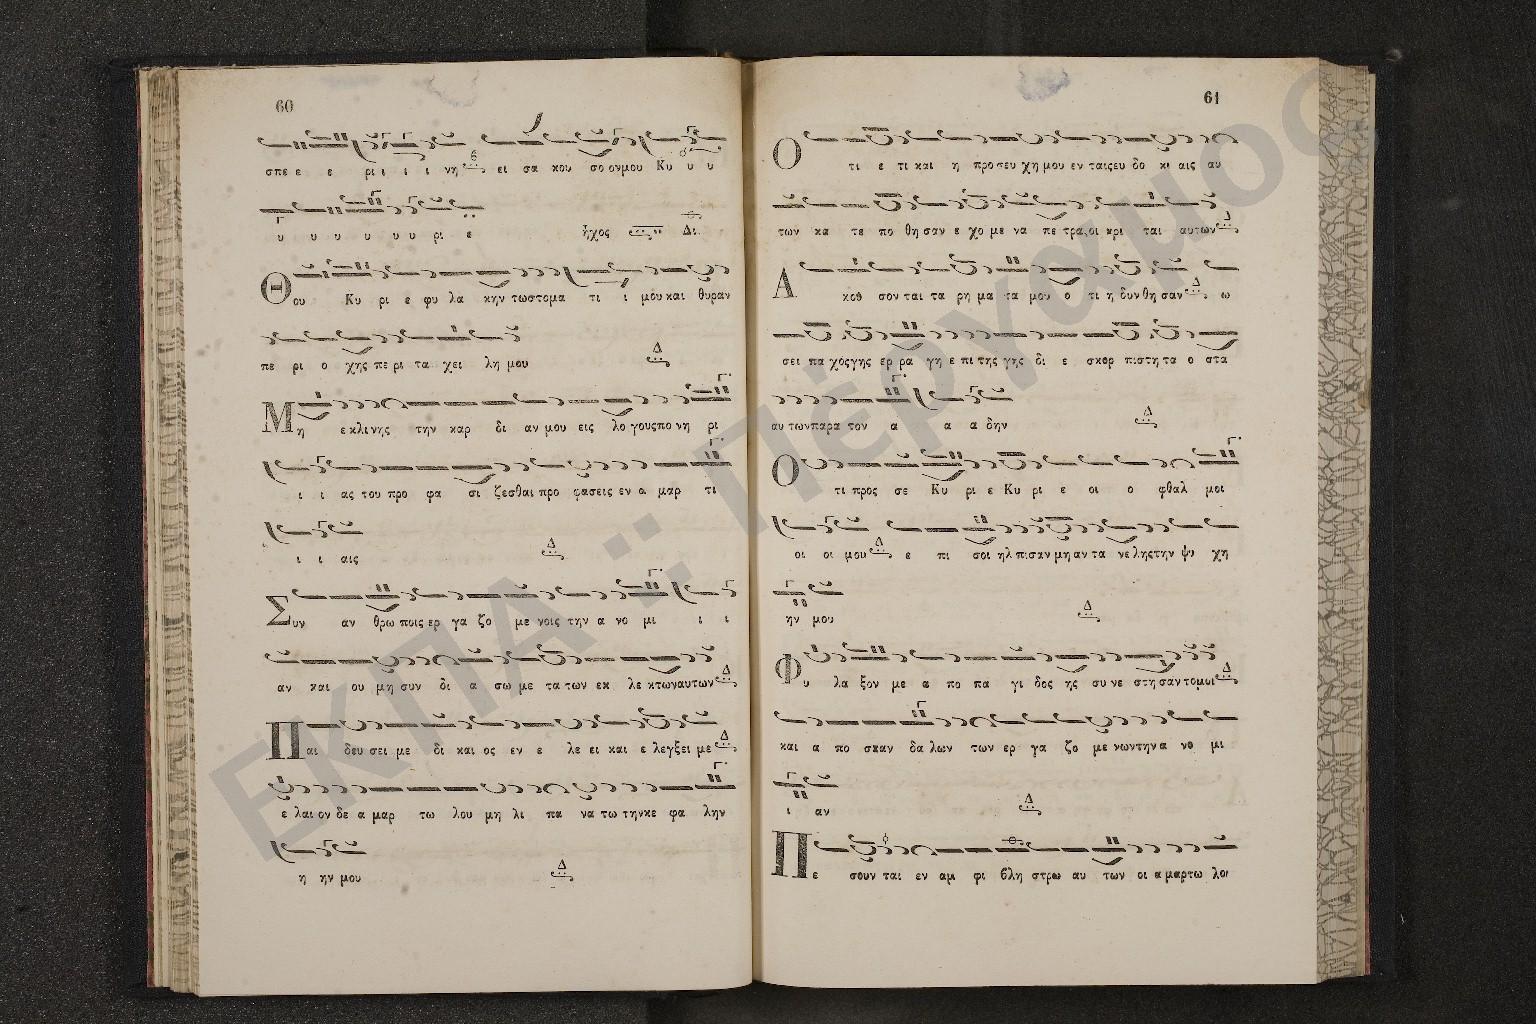 60
σπε ε ε ρι ι ι ι νη ει σα κου σο ον μου Κυ υ υ
υ υ υ υ υ υ ρι ε ἦχος Δι
Θου Κυ ρι ε φυ λα κην τω στομα τι ι μου και θυραν
πε ρι ο χης πε ρι τα χει λη μου Δ
Μη εκλινης την καρ δι αν μου εις λο γους πο νη ρι
ι ι ας του προ φα σι ζεσθαι προ φασεις εν α μαρ τι
ι ι αις Δ
Συν αν θρω ποις ερ γα ζο με νοις την α νο μι ι ι
αν και ου μη συν δι α σω με τα των εκ λε κτων αυτων Δ
Παι δευ σει με δι και ος εν ε λε ει και ε λεγξει με Δ
ε λαι ον δε α μαρ τω λου μη λι πα να τω την κε φα λην
η ην μου Δ
61
Ο τι ε τι και η προσευ χη μου εν ταις ευ δο κι αις αυ
των κα τε πο θη σαν ε χο με να πε τρας οι κρι ται αυτων
Α κου σον ται τα ρη μα τα μου ο τι η δυν θη σαν Δ ω
σει πα χος γης ερ ρα γη ε πι της γης δι ε σκορ πιστη τα ο στα
αυ των παρα τον α α α δην Δ
Ο τι προς σε Κυ ρι ε Κυ ρι ε οι ο φθαλ μοι
οι οι μου Δ ε πι σοι ηλ πισαν μη αν τα νε λης την ψυ χη
ην μου Δ
Φυ λα ξον με α πο πα γι δος ης συ νε στη σαν το μοι Δ
και α πο σκαν δα λων των ερ γα ζο με νων την α νο μι
ι αν Δ
Πε σουν ται εν αμ φι βλη στρω αυ των οι α μαρτω λοι
ΕΚΠΑ :: Πέργαμος